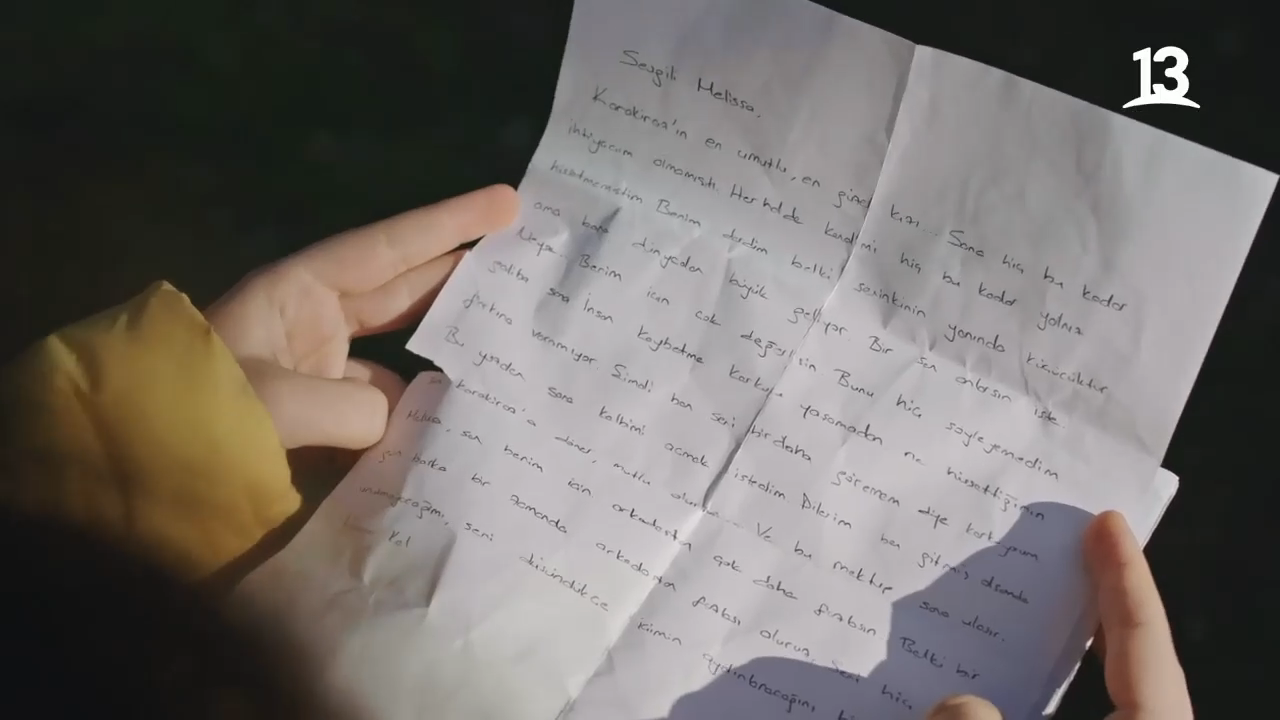 Sevgili Melissa.
en umutlu, en güzel kızı... Sana hiç bu kadar
ihtiyacım olmamıştı. Herhalde kendimi hiç bu kadar yalnız
hissetmemiştim Benim derdim belki seninkinin yanında küçücüktür
ama bana dünyadan büyük geliyor. Bir sen anlarsın işte.
Neyse... Benim için çok değerlisin Bunu hiç söyleyemedim
galiba sana İnsan kaybetme korkusu yaşamadan ne hissettiğinin
farkına varamıyor. Şimdi ben seni bir daha göremem diye korkuyorum
Bu yüzden sana kalbimi açmak istedim. Dilerim ben gitmiş olsamda
döner, mutlu Ve bu mektup sana ulaşır.
Melissa, sen benim için arkadaştan çok daha fazlasın. Belki bir
gün başka bir zamanda arkadaştan fazlası oluruz. Seni hiç
unutmayacağım, seni düşündükçe
Kal
13